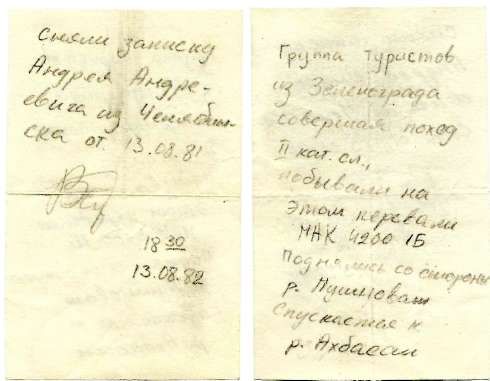 сняли записку
Андрея Андре-
евича из Челябин-
ска от 13.08.81
18 30
13.08.82
Группа туристов
из Зеленограда
совершая поход
II кат. сл.,
побывали на
этом перевали
МАК 4200 1Б
Поднялись со стороны
р.
Спускаемся к
р.